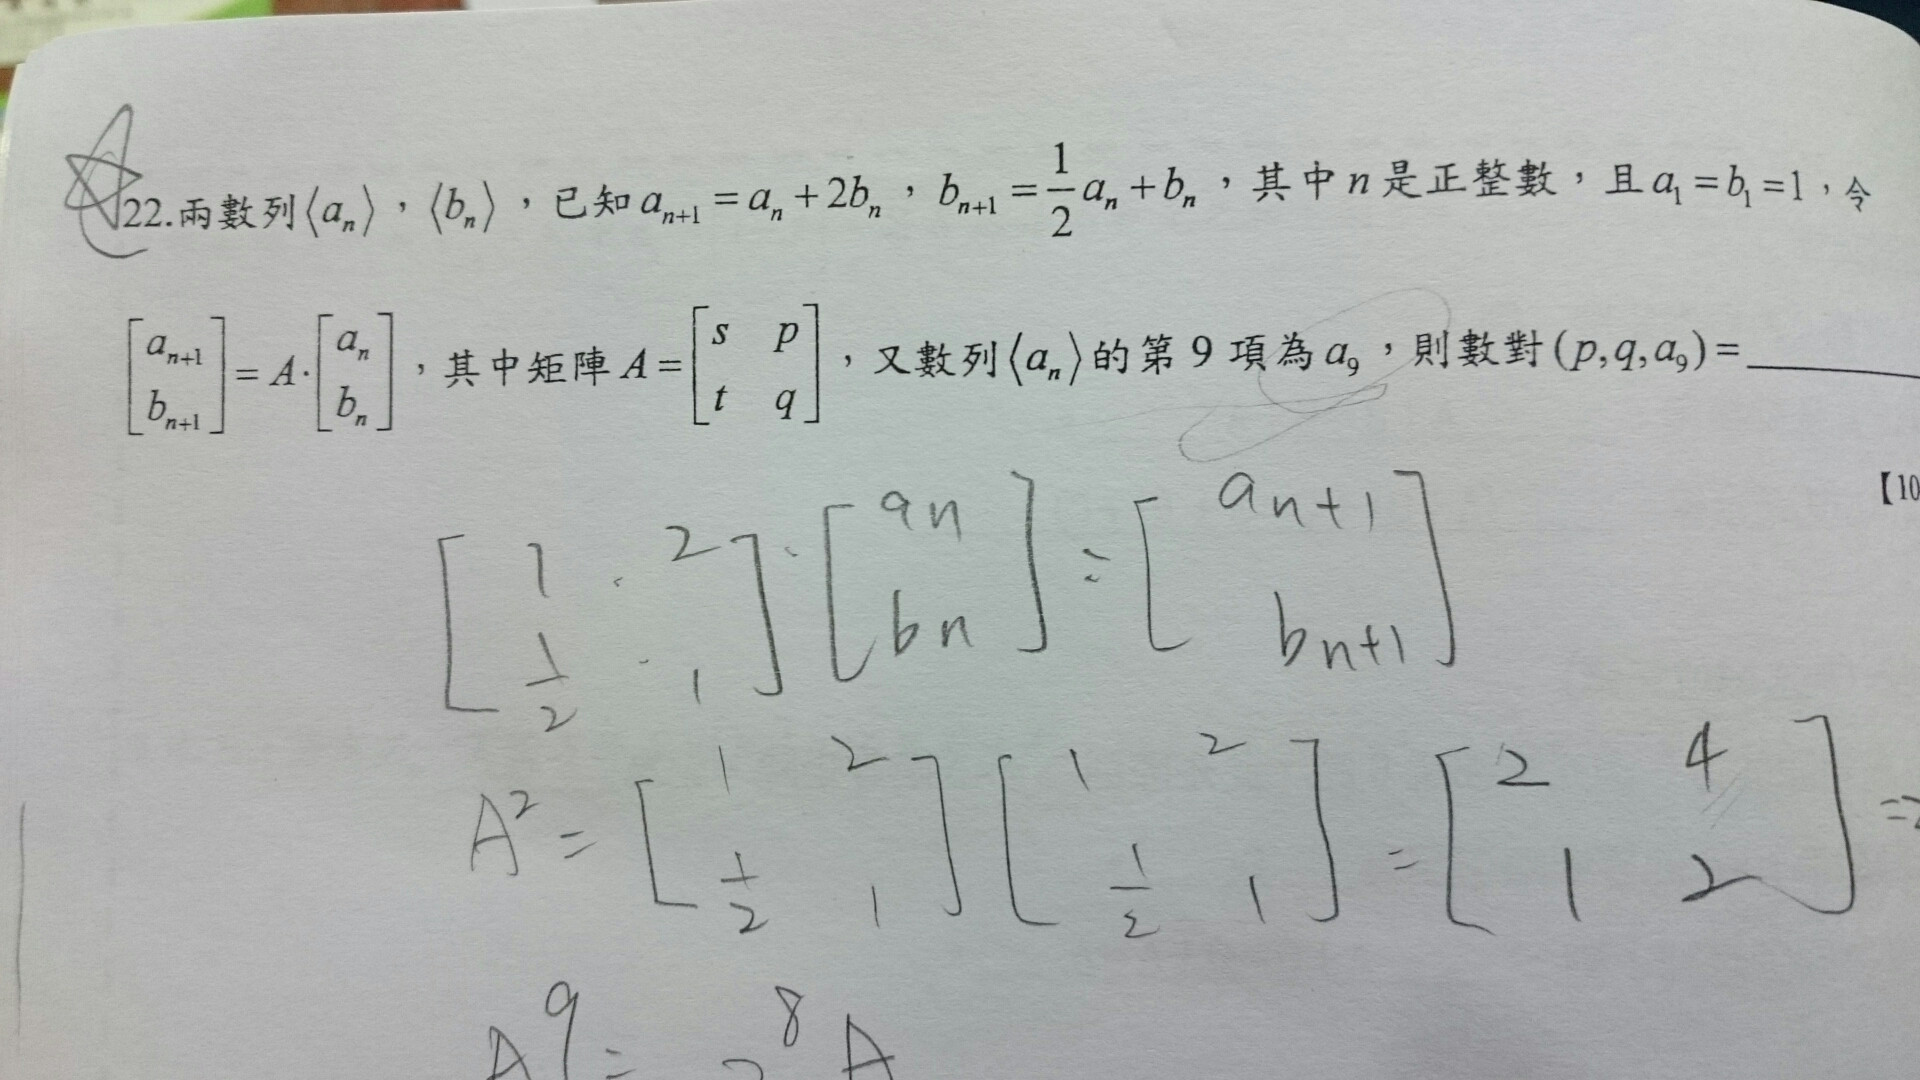 22.兩數列⟨aₙ⟩,⟨bₙ⟩,已知 aₙ₊₁ = aₙ + 2bₙ,bₙ₊₁ = 1/2 aₙ + bₙ,其中 n 是正整數,且 a₁ = b₁ = 1,令
[aₙ₊₁ bₙ₊₁] = A·[aₙ bₙ],其中矩陣 A = [s p t q],又數列⟨aₙ⟩的第 9 項為 a₉,則數對 (p, q, a₉) = ______
【10
[1 2 1/2 1]·[an bn] = [an+1 bn+1]
A² = [1 2 1/2 1] [1 2 1/2 1] = [2 4 1 2] =2
A⁹ = 2⁸ A